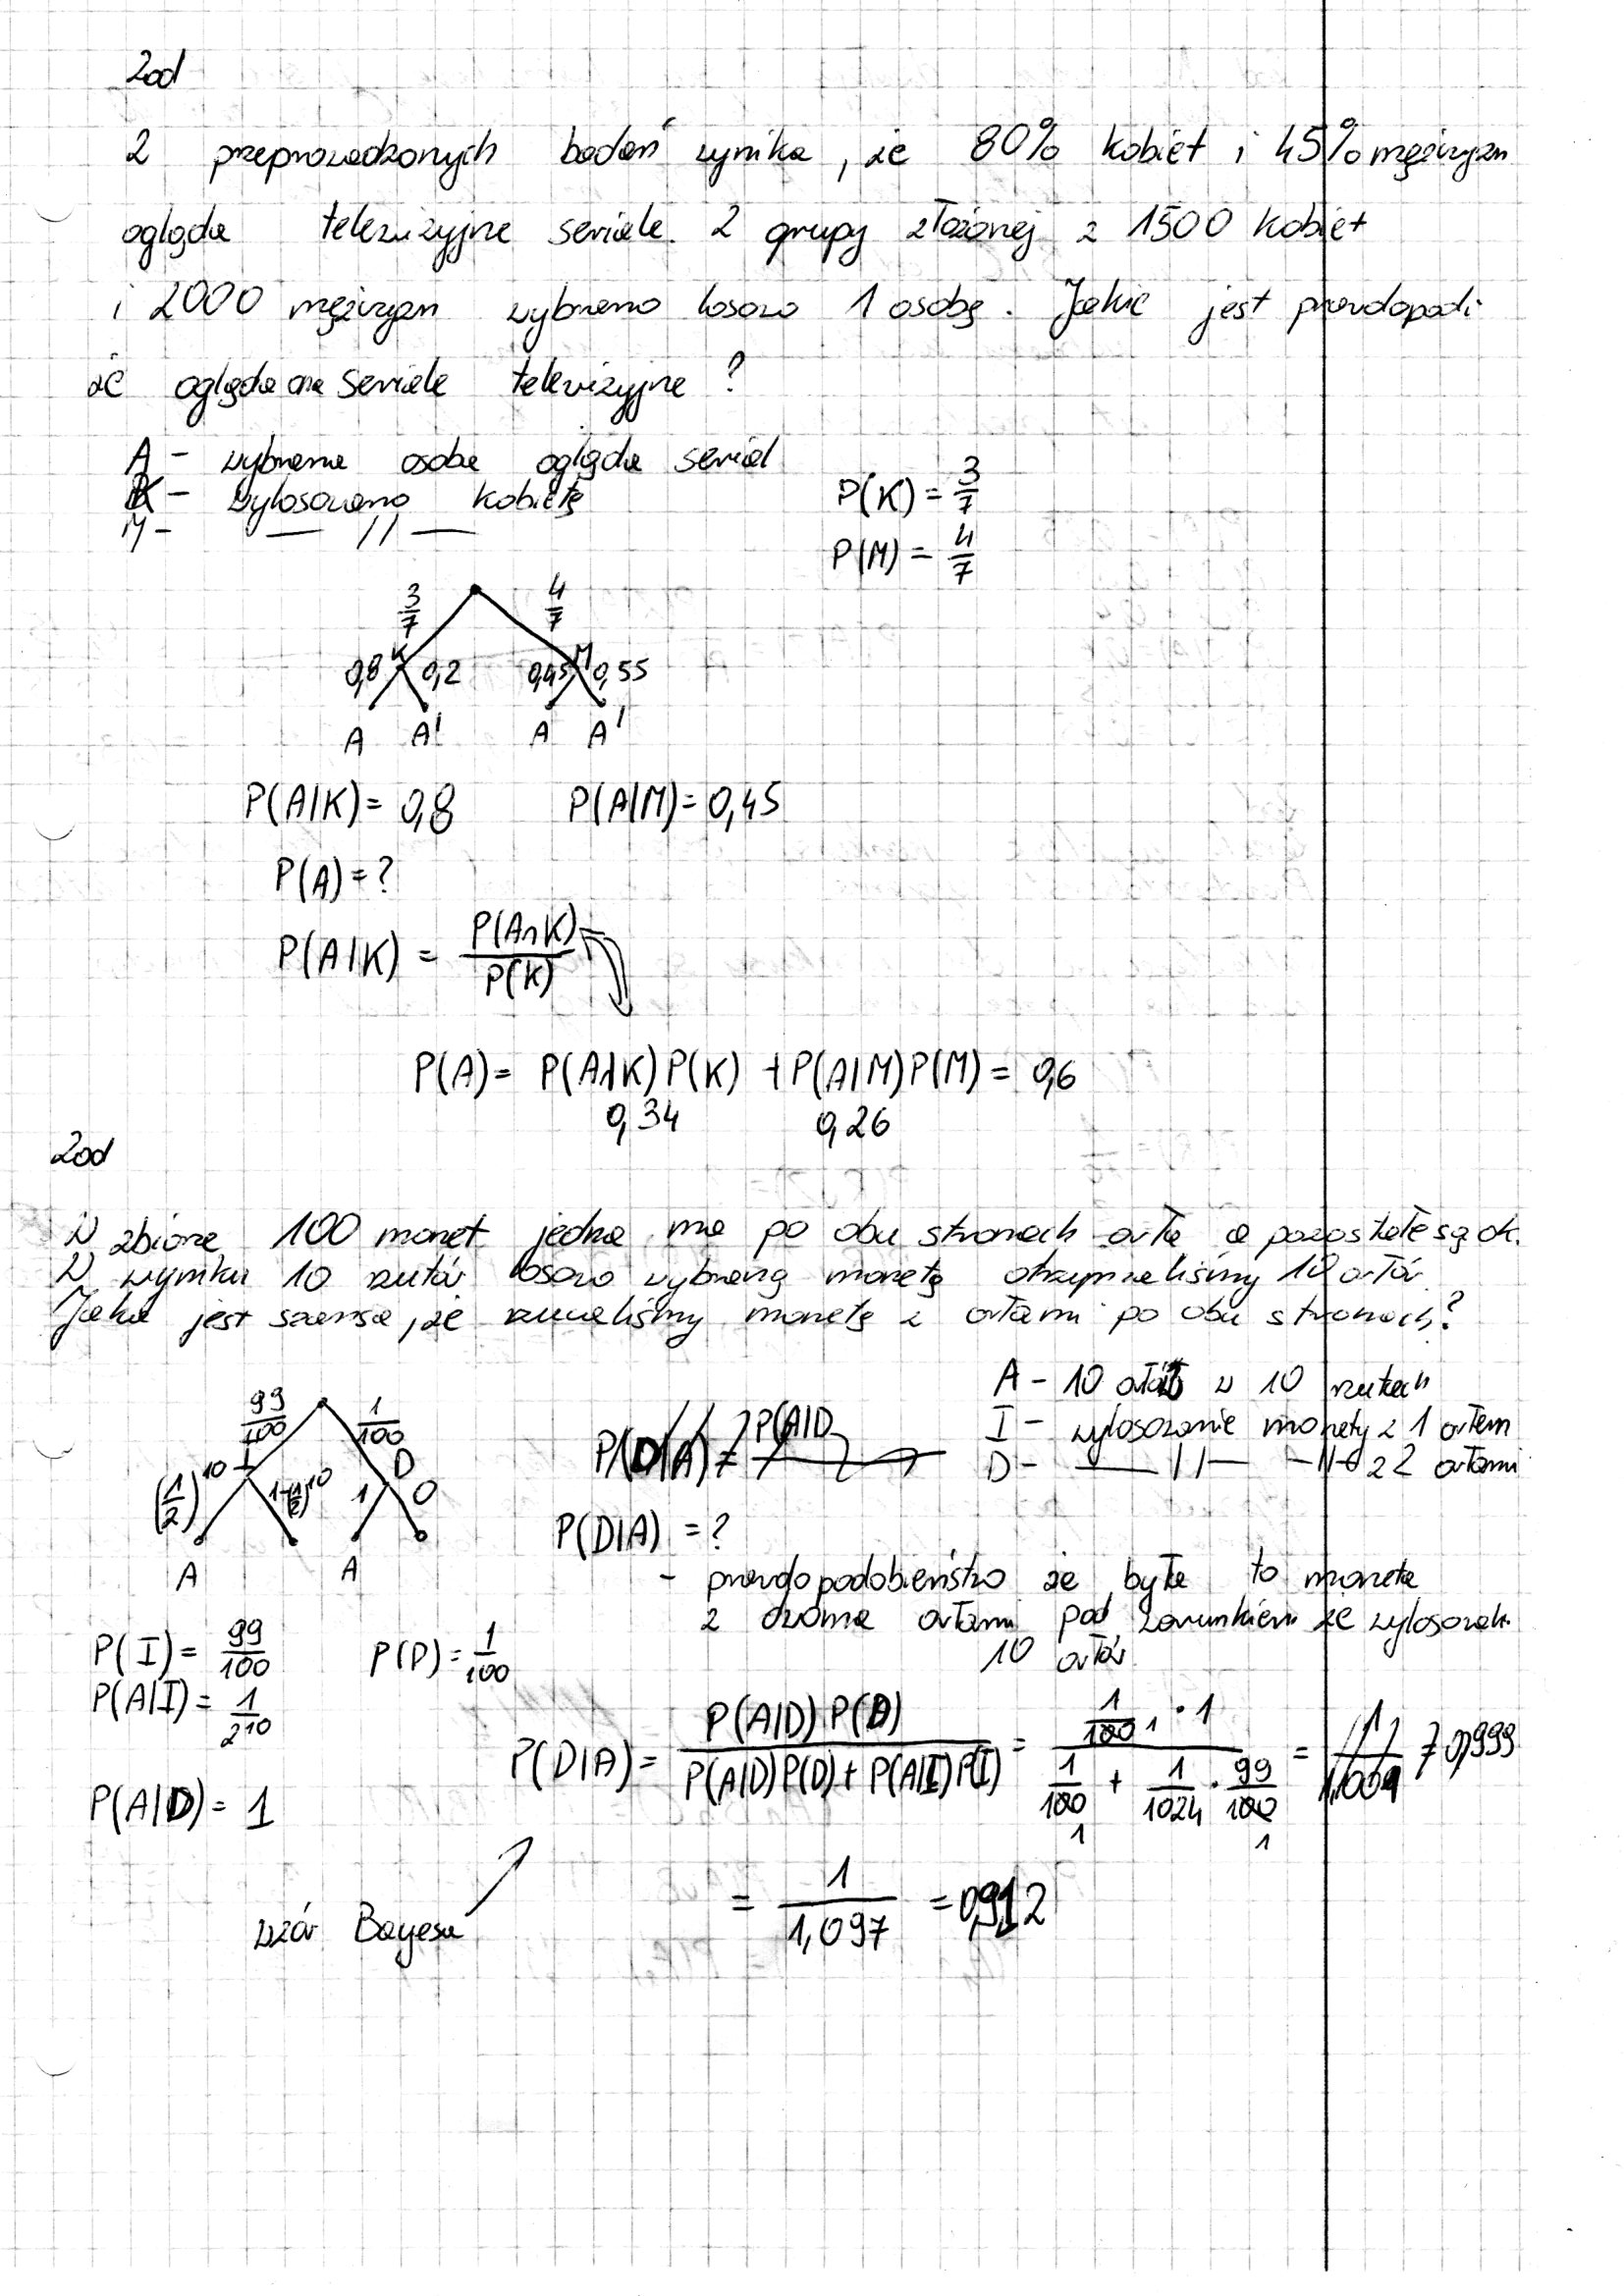 Zad
Z przeprowadzonych badań wynika, że 80% kobiet i 45% mężczyzn
ogląda telewizyjne seriale. Z grupy złożonej z 1500 kobiet
i 2000 mężczyzn wybrano losowo 1 osobę. Jakie jest prawdopod:
że ogląda ona seriale telewizyjne?
A - wybrana osoba ogląda serial
K - wylosowano kobietę
M - — // —
P(K) = 3/7
P(M) = 4/7
3/7 4/7
K M
0,8 0,2 0,45 0,55
A A' A A'
P(A|K) = 0,8 P(A|M) = 0,45
P(A) = ?
P(A|K) = P(A∩K)/P(K)
P(A) = P(A|K)P(K) + P(A|M)P(M) = 0,6
0,34 0,26
Zad
W zbiorze 100 monet jedna ma po obu stronach orła a pozostałe są ok.
W wyniku 10 rzutów losowo wybraną monetą otrzymaliśmy 10 orłów.
Jaka jest szansa, że rzucaliśmy monetą z orłami po obu stronach?
A - 10 orłów w 10 rzutach
I - wylosowanie monety z 1 orłem
D - — // — — // — z 2 orłami
99/100 1/100
I D
(1/2)^10 1-(1/2)^10 1 0
A A
P(D|A) = ?
- prawdopodobieństwo że była to moneta
z dwoma orłami pod warunkiem że wylosowal.
10 orłów
P(I) = 99/100 P(D) = 1/100
P(A|I) = 1/2^10
P(A|D) = 1
P(D|A) = P(A|D)P(D)/(P(A|D)P(D) + P(A|I)P(I)) = (1/100 · 1)/(1/100 + 1/1024 · 99/100) =
= 1/1,097 = 0,912
wzór Bayesa